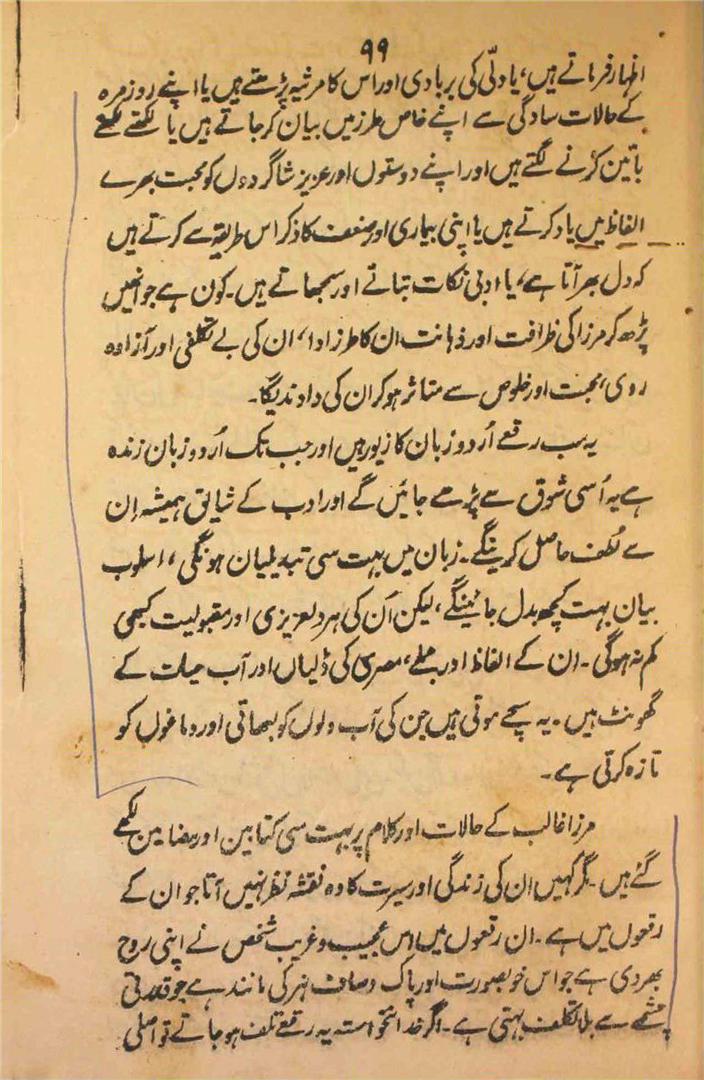 ۹۹
اظہار فرماتے ہیں، یا دلّی کی بربادی اور اس کا مرثیہ پڑھتے ہیں یا اپنے روزمرہ
کے حالات سادگی سے اپنے خاص طرز میں بیان کر جاتے ہیں یا لکھتے لکھتے
باتین کرنے لگتے ہیں اور اپنے دوستوں اور عزیز شاگردوں کو محبت بھرے
الفاظ میں یاد کرتے ہیں یا اپنی بیماری اور ضعف کا ذکر اس طریقہ سے کرتے ہیں
کہ دل بھر آتا ہے، یا ادبی نکات بتاتے اور سمجھاتے ہیں۔ کون ہے جو انھیں
پڑھ کر مرزا کی ظرافت اور ذہانت ان کا طرز ادا، ان کی بے تکلفی اور آزادہ
روی، محبت اور خلوص سے متاثر ہو کر ان کی داد ندیگا۔
یہ سب رقعے اُردو زبان کا زیور ہیں اور جب تک اُردو زبان زندہ
ہے یہ اُسی شوق سے پڑھے جائیں گے اور ادب کے شایق ہمیشہ اِن
سے لُطف حاصل کرینگے۔ زبان میں بہت سی تبدیلیان ہونگی، اسلوب
بیان بہت کچھ بدل جائینگے، لیکن اُن کی ہر دلعزیزی اور مقبولیت کبھی
کم نہ ہوگی۔ ان کے الفاظ اور جملے، مصری کی ڈلیاں اور آب حیات کے
گھونٹ ہیں۔ یہ سچے موتی ہیں جن کی آب دلوں کو لبھاتی اور دماغوں کو
تازہ کرتی ہے۔
مرزا غالب کے حالات اور کلام پر بہت سی کتابین اور مضامین لکھے
گئے ہیں۔ مگر کہیں ان کی زندگی اور سیرت کا وہ نقشہ نظر نہیں آتا جو ان کے
رقعوں میں ہے۔ ان رقعوں میں اس عجیب و غریب شخص نے اپنی روح
بھر دی ہے جو اس خوبصورت اور پاک و صاف نہر کی مانند ہے جو قدرتی
چشمے سے بلا تکلف بہتی ہے۔ اگر خدانخواستہ یہ رقعے تلف ہو جاتے تو اصلی